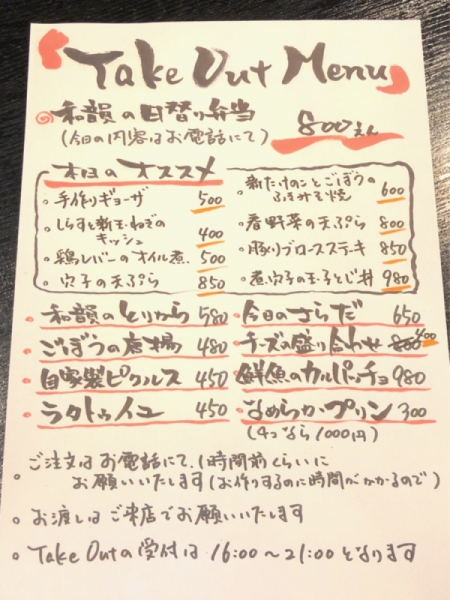 Take Out Menu
和韻の日替り弁当
(今日の内容はお電話にて) 800えん
本日のオススメ
・手作りギョーザ 500
・しらすと新玉ねぎの
キッシュ 400
・鶏レバーのオイル煮 500
・穴子の天ぷら 850
・新たけのことごぼうの
ふきみそ焼 600
・春野菜の天ぷら 800
・豚リブロースステーキ 850
・煮穴子の玉子とじ丼 980
・和韻のとりから 580
・ごぼうの唐揚 480
・自家製ピクルス 450
・ラタトゥイユ 450
・今日のさらだ 650
・チーズの盛り合わせ 400
・鮮魚のカルパッチョ 980
・なめらかプリン 300
(4つなら1000円)
。ご注文はお電話にて、1時間前くらいに
お願いいたします(お作りするのに時間がかかるので)
。お渡しはご来店でお願いいたします
。Take Outの受付は16:00～21:00となります